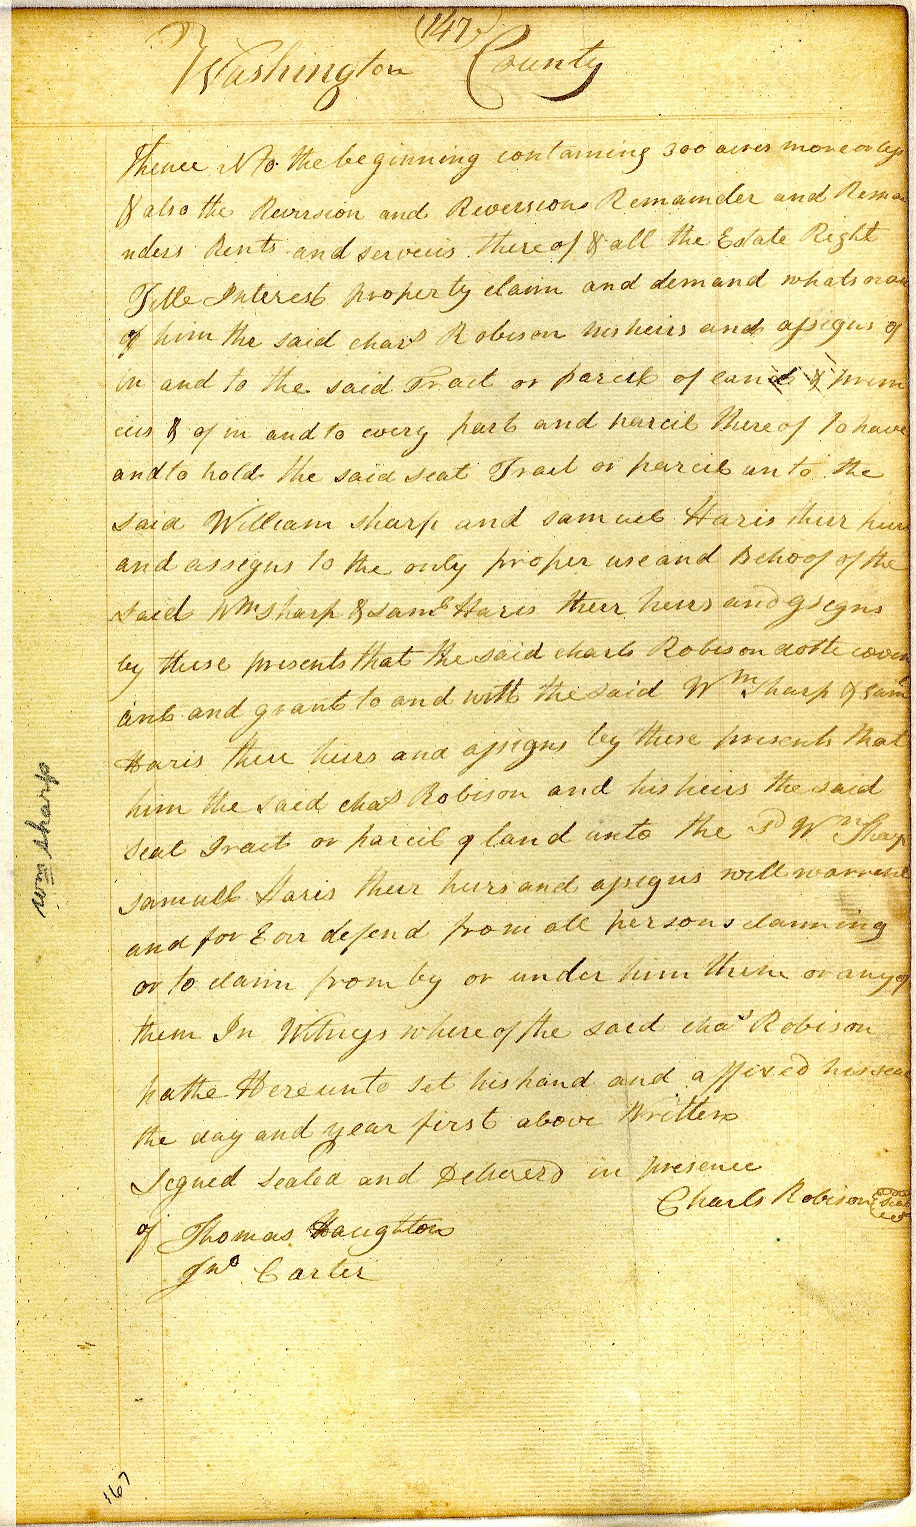 (147)
Washington County
Thence No to the beginning containing 300 acres more or less
& also the Reversion and Reversions Remainder and Remai
nders Rents and services there of & all the Estate Right
Title Interest property claim and demand whatsoever
of him the said chars Robison his heirs and assigns of
in and to the said Tract or parcil of land & prim
cies & of in and to every part and parcil there of To have
and to hold the said seat Tract or parcil unto the
said William Sharp and samuel Haris their heirs
and assegns to the only proper use and Behoof of the
said Wm Sharp & Saml Haris their heirs and
by these presents that the said charls Robison dothe coven
ant and grant to and with the said Wm Sharp & Saml
Haris their heirs and assigns by these presents that
him the said chas Robison and his heirs the said
seat Tract or parcil of land unto the sd Wm Sharp
samuell Haris their heirs and assigns will warrent
and for Ever defend from all persons claiming
or to claim from by or under him them or any of
them In Witness where of the said chas Robison
hathe Hereunto set his hand and affixed his seal
the day and year first above Written
Segned Sealed and Delivered in presence
Charls Robison Seal
of Thomas Haughton
Jno Carter
wm sharp
167